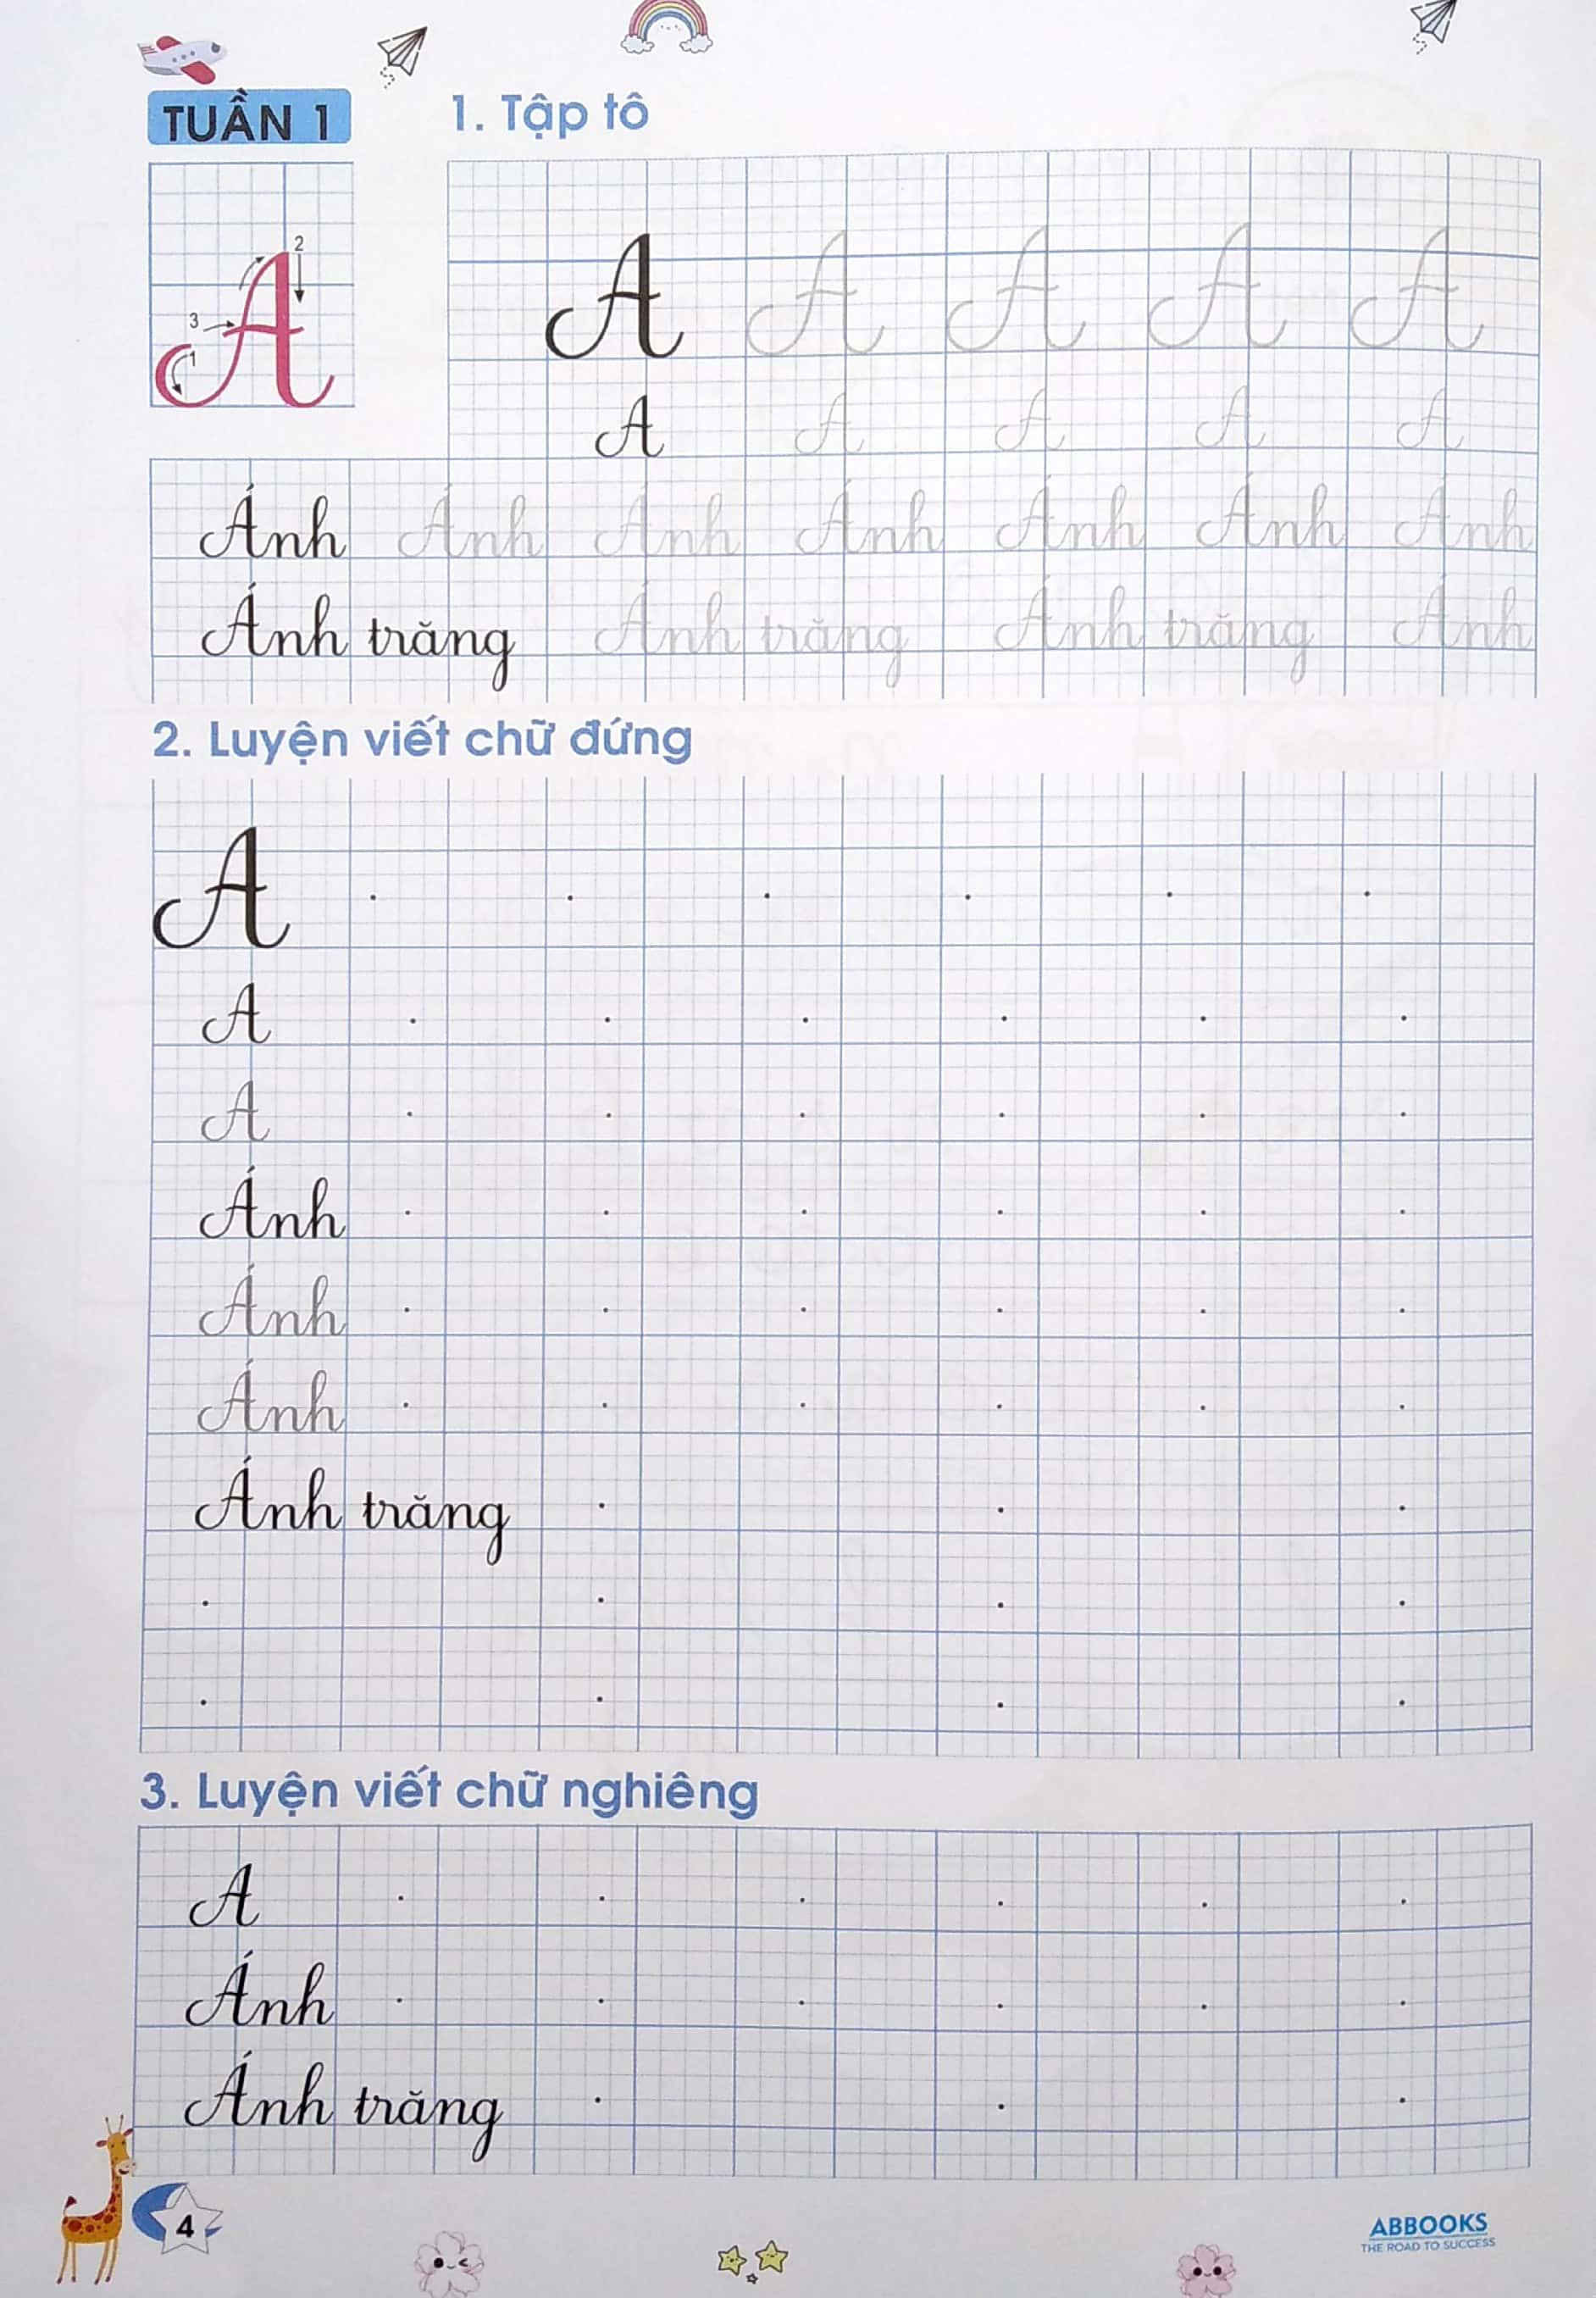 TUẦN 1
1. Tập tô
2
3
1
A A A A A
A A A A A
Ánh Ánh Ánh Ánh Ánh Ánh Ánh
Ánh trăng Ánh trăng Ánh trăng Ánh
2. Luyện viết chữ đứng
A
A
A
Ánh
Ánh
Ánh
Ánh trăng
3. Luyện viết chữ nghiêng
A
Ánh
Ánh trăng
4
ABBOOKS
THE ROAD TO SUCCESS